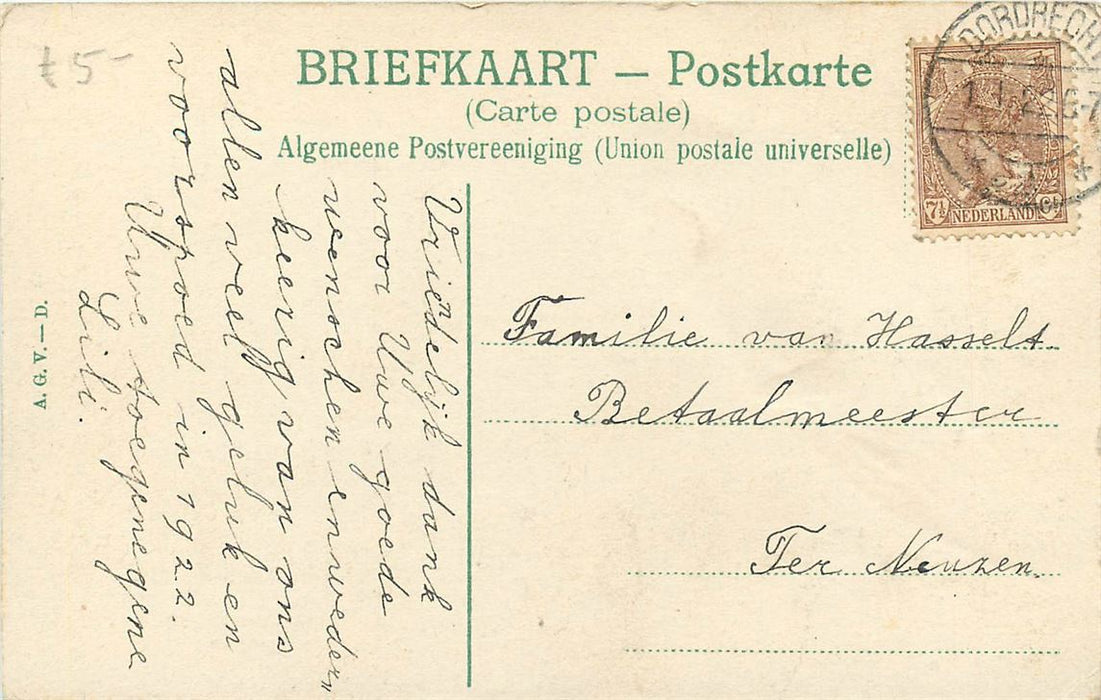 BRIEFKAART — Postkarte
(Carte postale)
Algemeene Postvereeniging (Union postale universelle)
Vriendelijk dank
voor Uwe goede
wenschen en weder„
keerig van ons
allen veel geluk en
voorspoed in 1922.
Uwe toegenegene
Lili.
Familie van Hasselt.
Betaalmeester
Ter Neuzen.
DORDRECHT
7½ NEDERLAND Ct
A. G. V. — D.